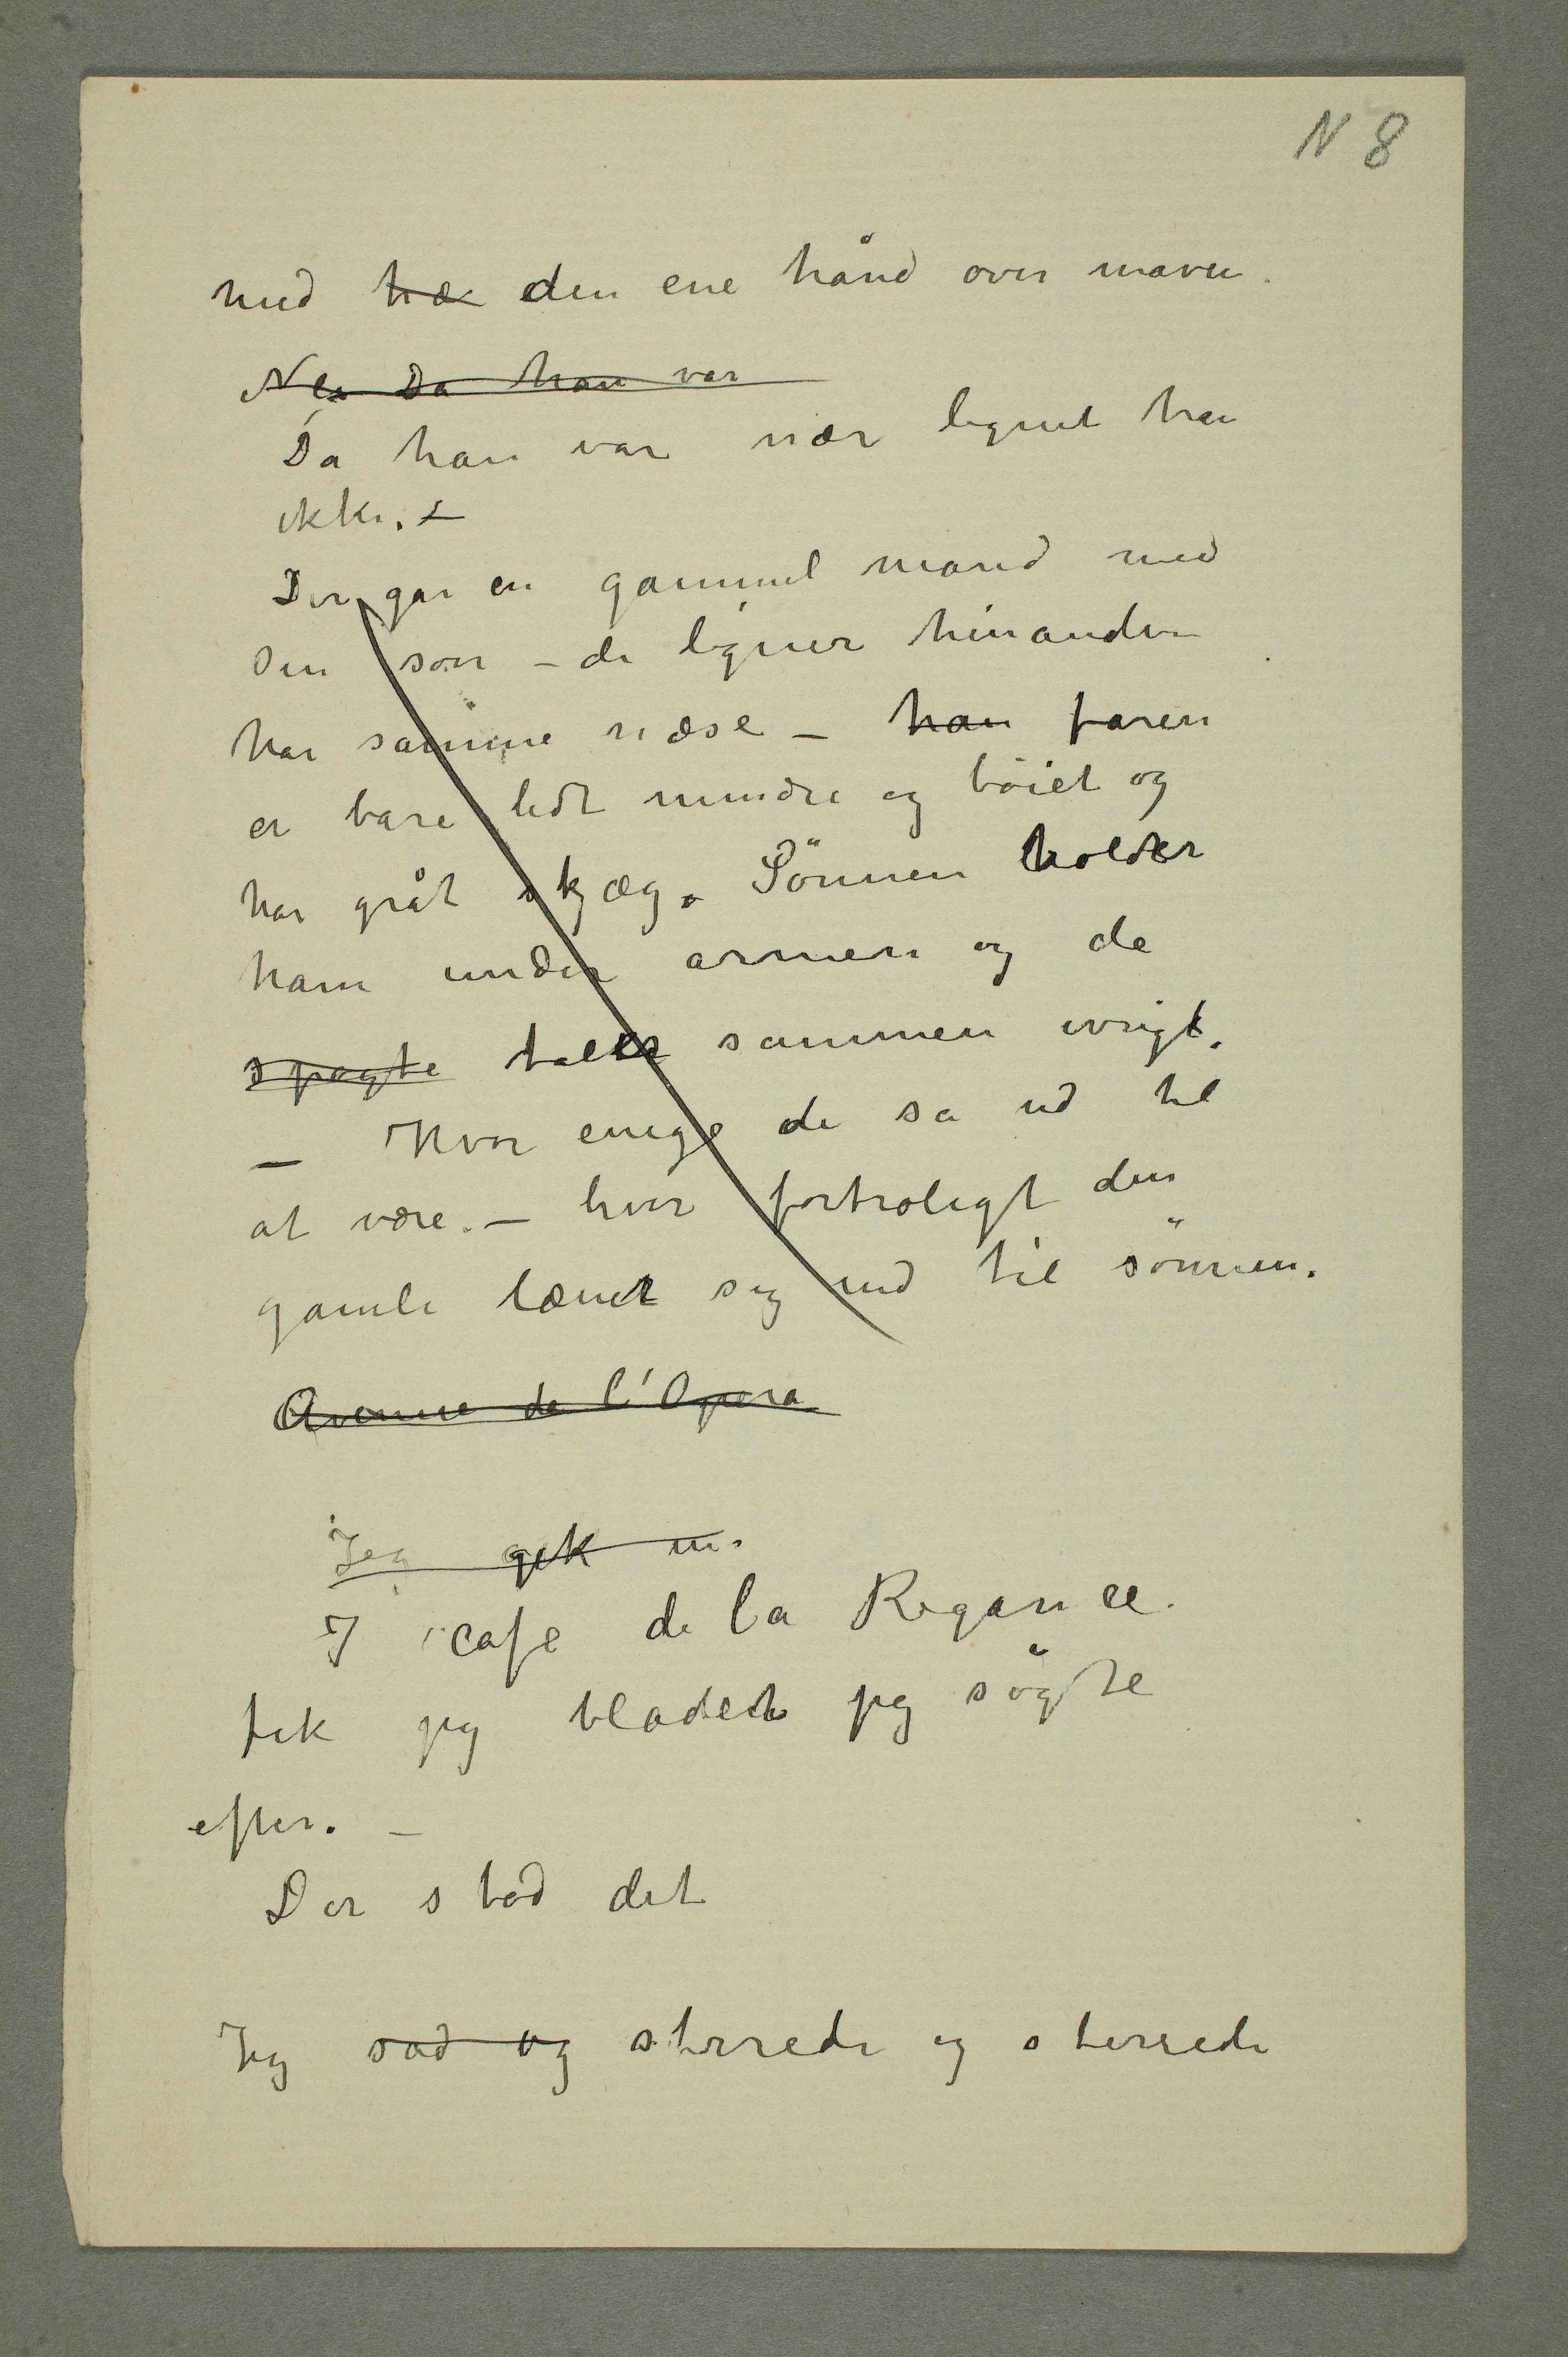 N 8
med hæ den ene hånd over maven.
Nei Da han var
Da han var nær lignet han
ikke. –
Der går en gammel mand med
sin søn – de ligner hinanden
har samme næse – han faren
er bare lidt mindre og böiet og
har gråt skjæg. Sönnen holder
ham under armen og de
spøgte taler sammen ivrigt.
– Hvor enige de så ud til
at være. – hvor fortroligt den
gamle lænet sig ind til sönnen.
Avenue de l'Opera
Jeg gik in.
I cafe de la Regance.
fik jeg bladet jeg søgte
efter. –
Der stod det
Jeg sad og stirrede og stirrede